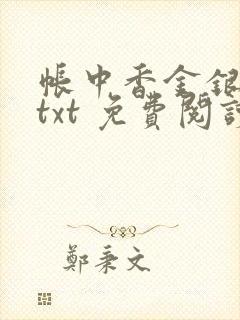 帳中香金銀
txt 免費閱讀
鄭秉文